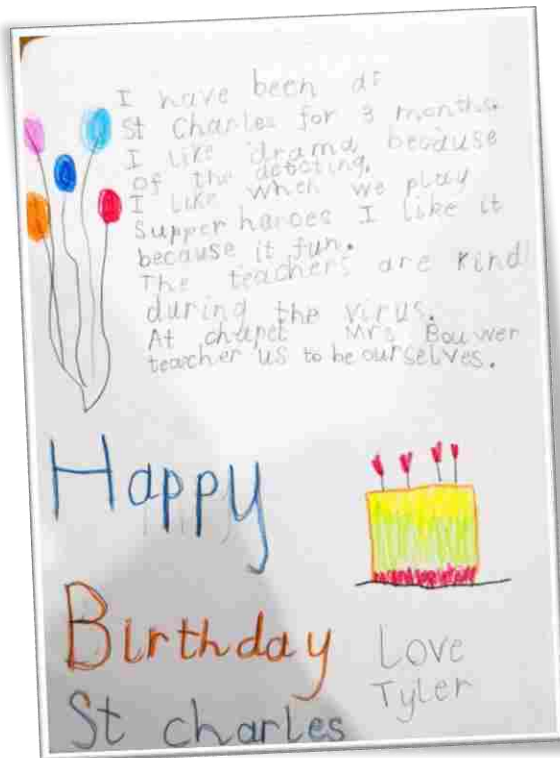 I have been at
St Charles for 3 months.
I like drama because
of the
I like when we play
Supper haroes I like it
because it fun.
The teachers are kind
during the virus.
At chapel Mrs Bouwer
teacher us to be ourselves.
Happy
Birthday
St charles
Love
Tyler